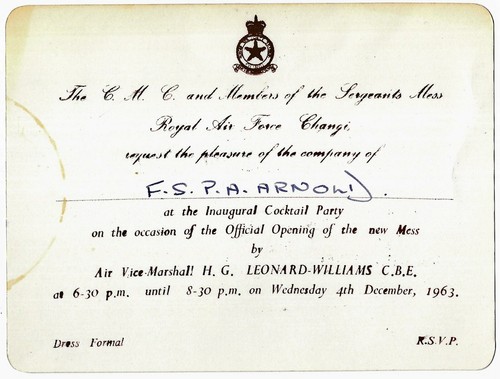 The C. M. C. and Members of the Sergeants Mess
Royal Air Force Changi,
request the pleasure of the company of
F.S. P.A. ARNOLD.
at the Inaugural Cocktail Party
on the occasion of the Official Opening of the new Mess
by
Air Vice-Marshall H. G. LEONARD-WILLIAMS C.B.E.
at 6-30 p.m. until 8-30 p.m. on Wednesday 4th December, 1963.
Dress Formal
R.S.V.P.